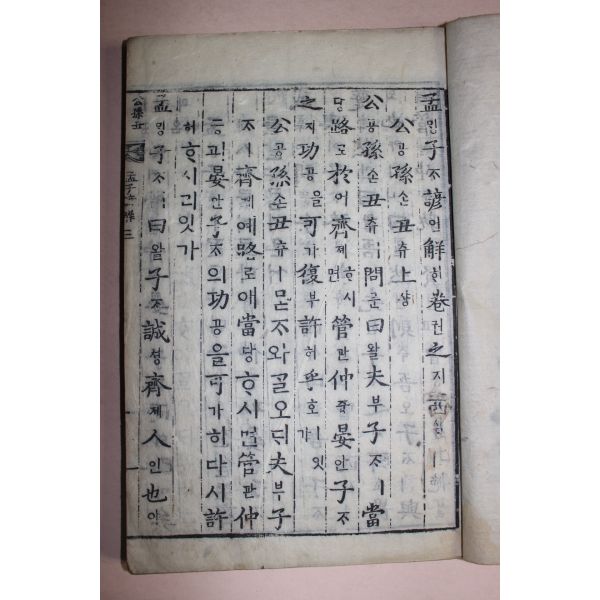 孟밍子ᄌᆞ諺언解ᄒᆡ卷권之지
公공孫손丑츄上샹
公공孫손丑츄ㅣ問문曰왈夫부子ᄌᆞㅣ當
당路로於어齊졔ᄒᆞ시면管관仲듕晏안子ᄌᆞ
之지功공을可가復부許허乎호ㅣ잇가
公공孫손丑츄ㅣ묻ᄌᆞ와ᄀᆞᆯ오ᄃᆡ夫부子
ᄌᆞㅣ齊졔예路로애當당ᄒᆞ시면管관仲
듕과晏안子ᄌᆞ의功공을可가히다시許
허ᄒᆞ시리잇가
孟밍子ᄌᆞㅣ曰왈子ᄌᆞㅣ誠셩齊졔人인也야
公孫丑 孟子諺解三